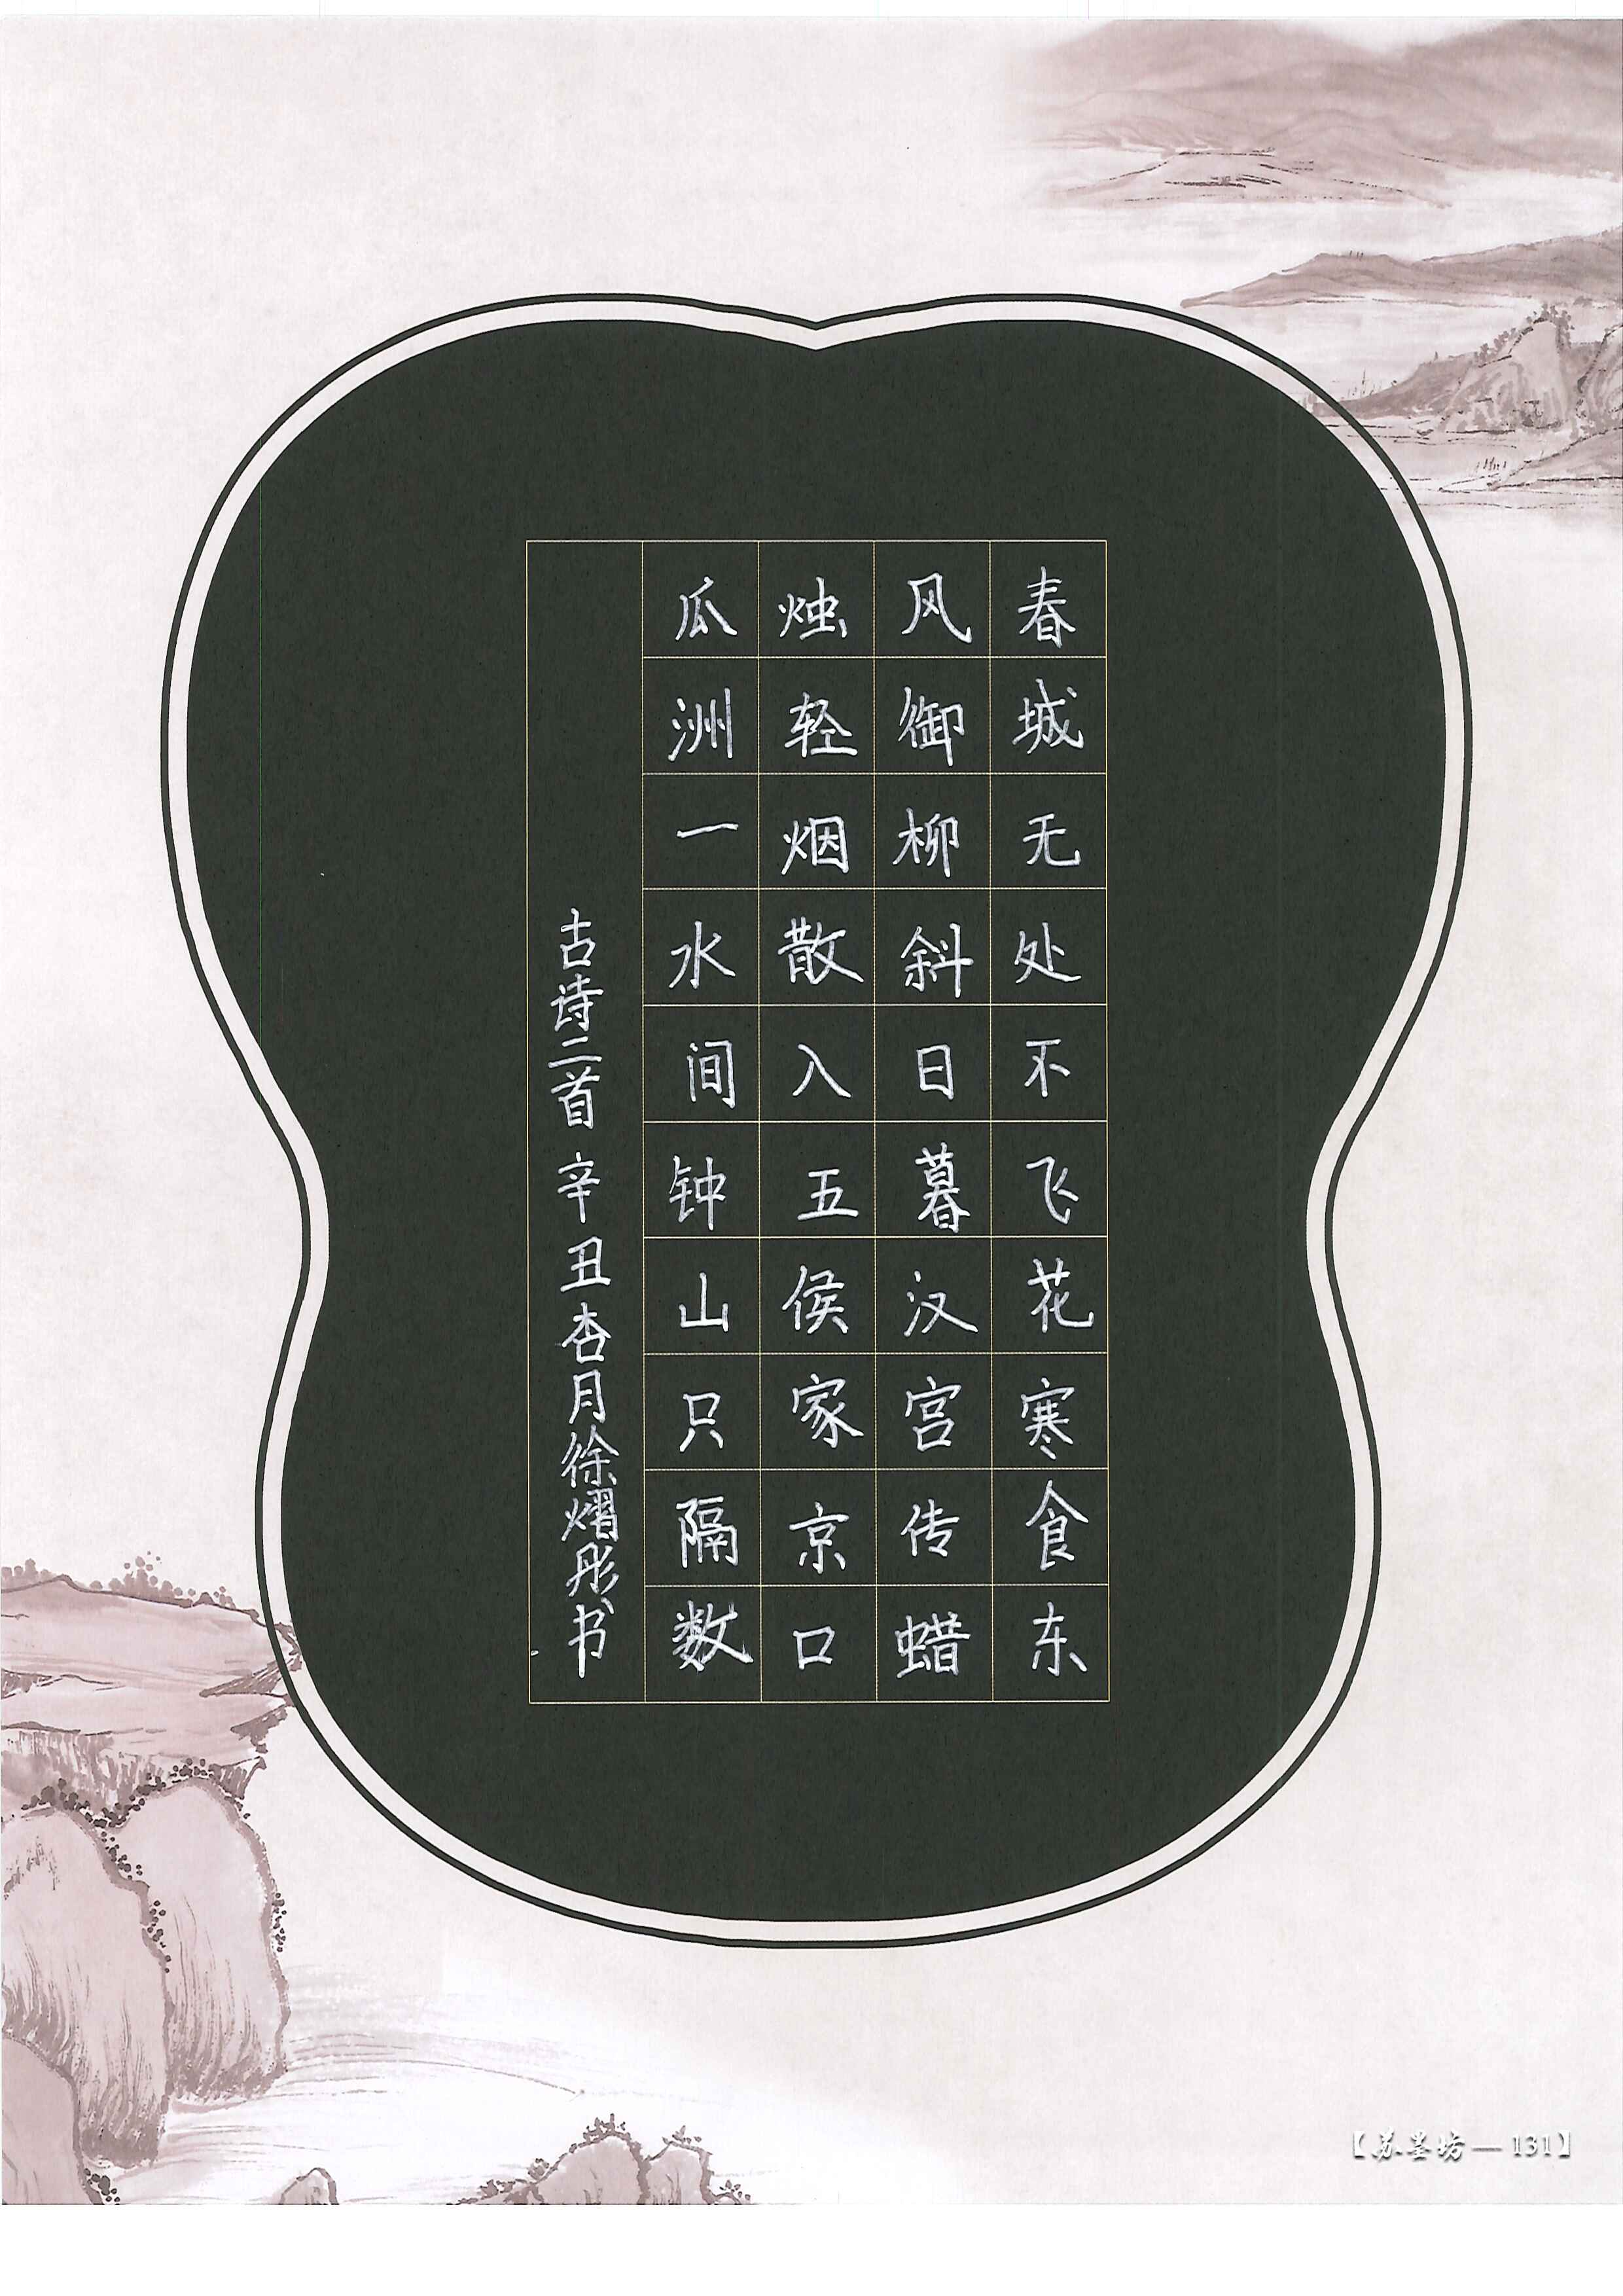 春城无处不飞花寒食东
风御柳斜日暮汉宫传蜡
烛轻烟散入五侯家京口
瓜洲一水间钟山只隔数
古诗二首 辛丑杏月徐熠彤书
【苏墨坊—131】